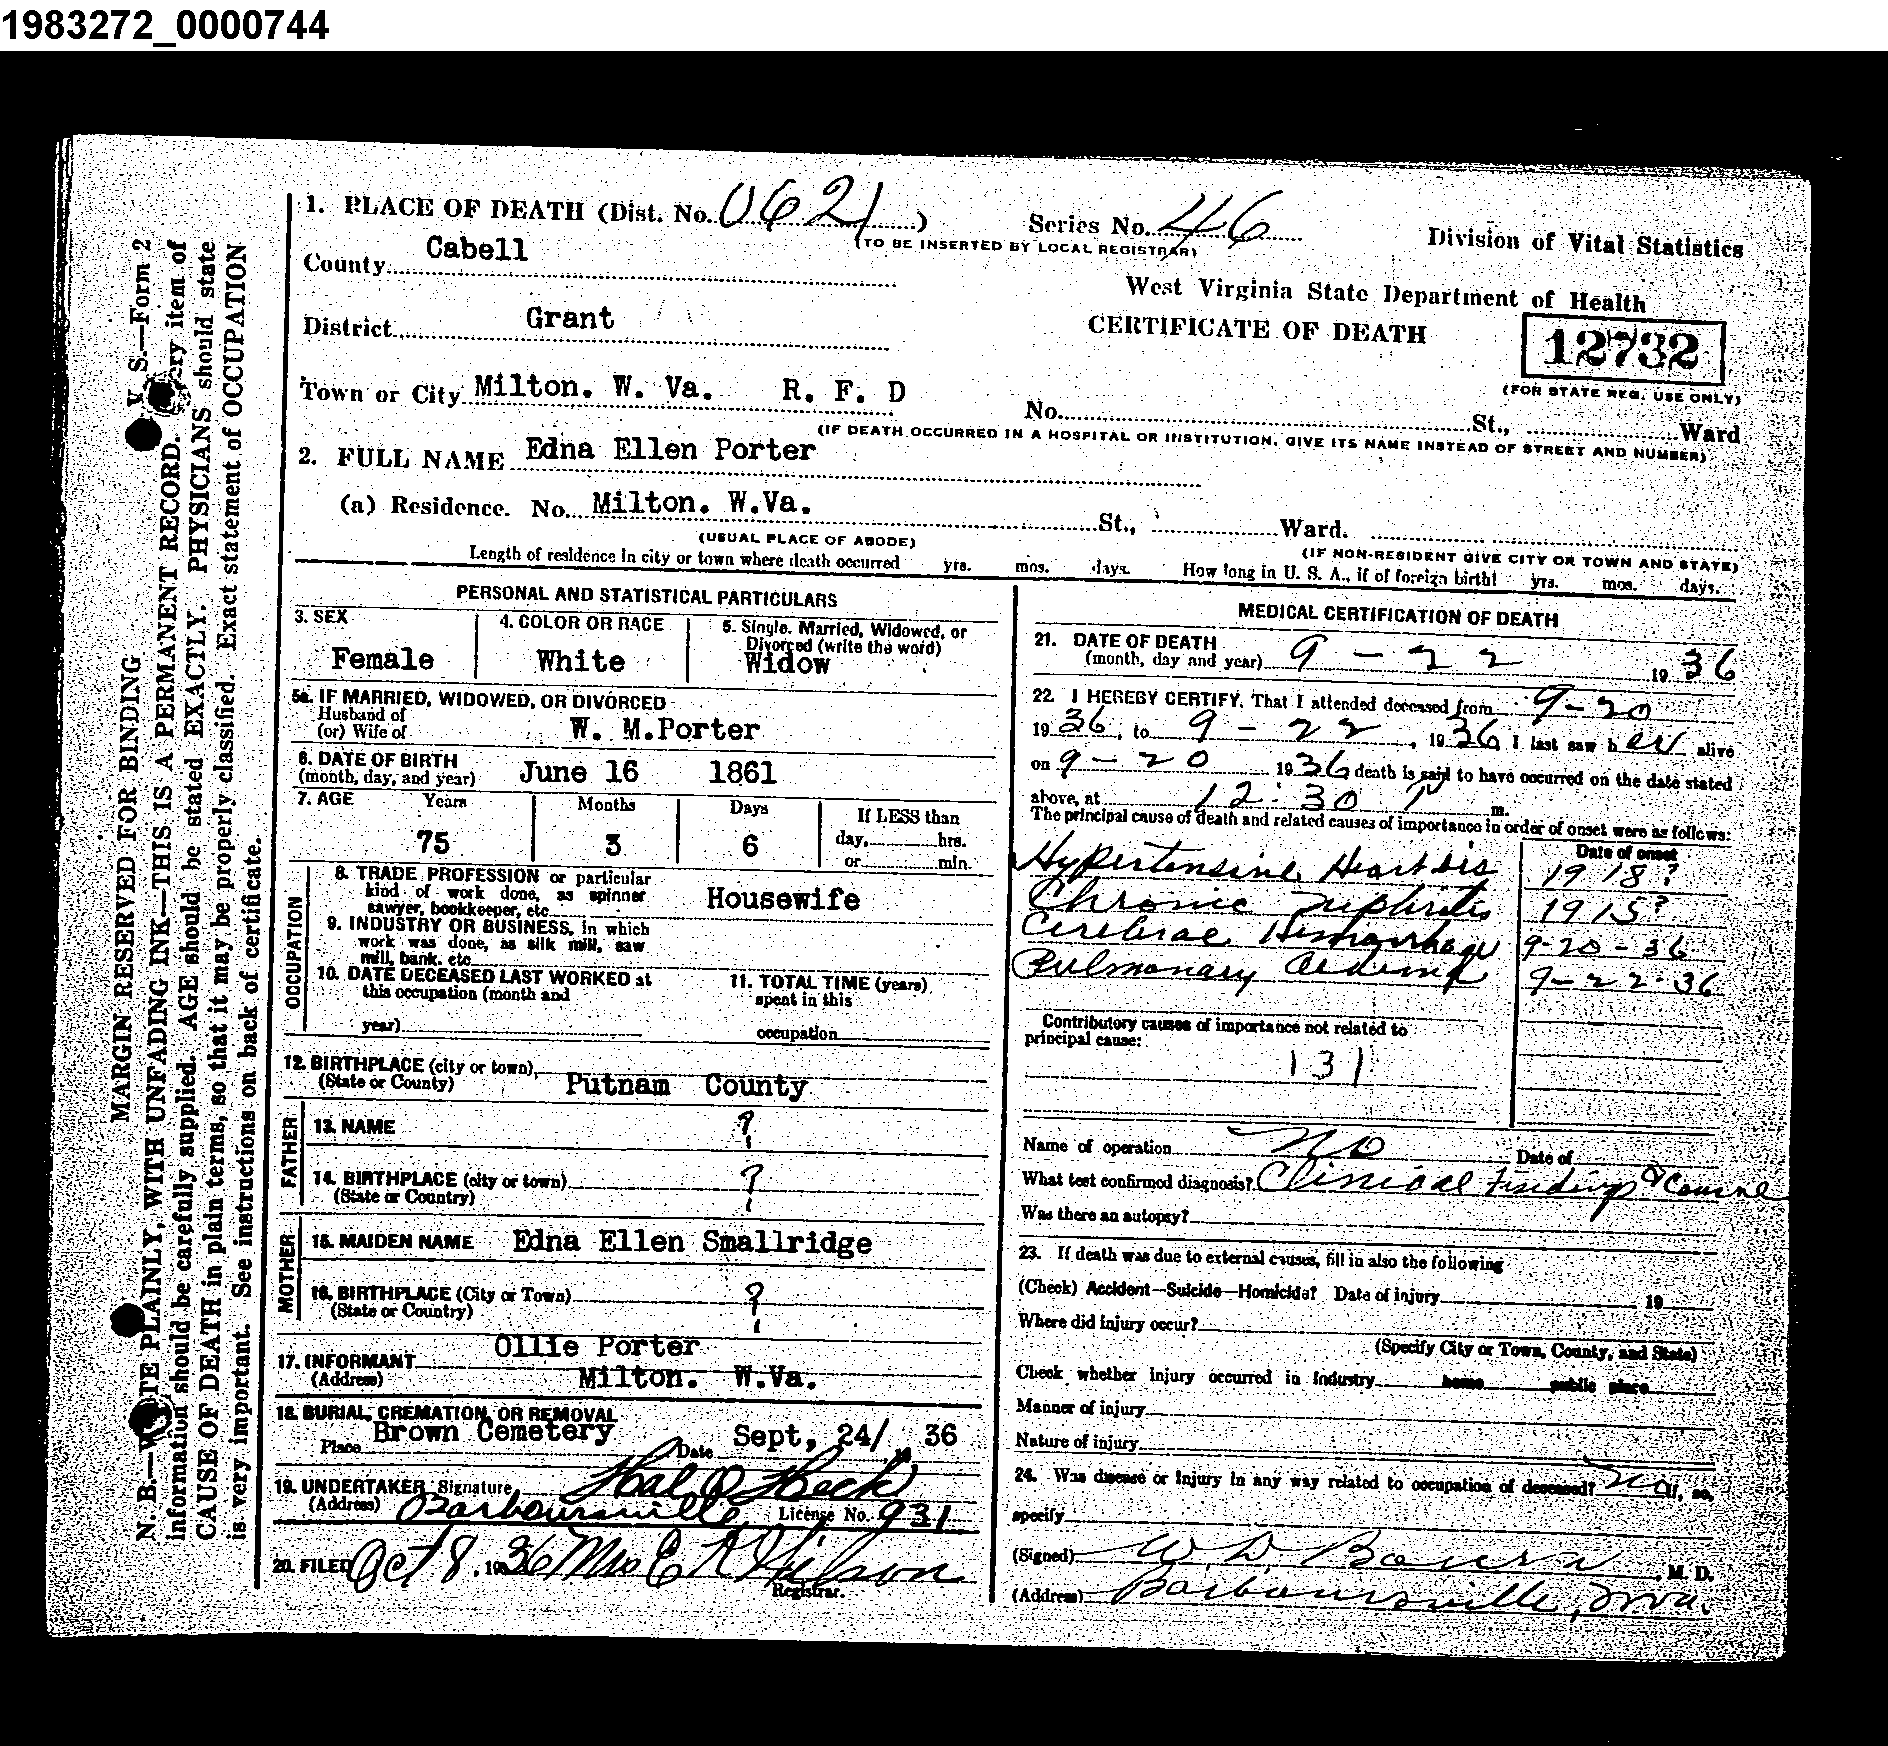 1983272_0000744
V. S.—Form 2
MARGIN RESERVED FOR BINDING
N. B.—WRITE PLAINLY, WITH UNFADING INK—THIS IS A PERMANENT RECORD. Every item of
information should be carefully supplied. AGE should be stated EXACTLY. PHYSICIANS should state
CAUSE OF DEATH in plain terms, so that it may be properly classified. Exact statement of OCCUPATION
is very important. See instructions on back of certificate.
1. PLACE OF DEATH (Dist. No. 0621 ) Series No. 46
(TO BE INSERTED BY LOCAL REGISTRAR)
Division of Vital Statistics
County Cabell
West Virginia State Department of Health
District Grant
CERTIFICATE OF DEATH
12732
(FOR STATE REG. USE ONLY)
Town or City Milton. W. Va. R. F. D No. St., Ward
(IF DEATH OCCURRED IN A HOSPITAL OR INSTITUTION, GIVE ITS NAME INSTEAD OF STREET AND NUMBER)
2. FULL NAME Edna Ellen Porter
(a) Residence. No. Milton. W.Va. St., Ward.
(USUAL PLACE OF ABODE) (IF NON-RESIDENT GIVE CITY OR TOWN AND STATE)
Length of residence in city or town where death occurred yrs. mos. days. How long in U. S. A., if of foreign birth? yrs. mos. days.
PERSONAL AND STATISTICAL PARTICULARS
3. SEX 4. COLOR OR RACE 5. Single, Married, Widowed, or
Divorced (write the word)
Female White Widow
5a. IF MARRIED, WIDOWED, OR DIVORCED
Husband of
(or) Wife of W. M.Porter
6. DATE OF BIRTH
(month, day, and year) June 16 1861
7. AGE Years Months Days If LESS than
75 3 6 day, hrs.
or min.
OCCUPATION
8. TRADE, PROFESSION or particular
kind of work done, as spinner
sawyer, bookkeeper, etc. Housewife
9. INDUSTRY OR BUSINESS, in which
work was done, as silk mill, saw
mill, bank, etc.
10. DATE DECEASED LAST WORKED at
this occupation (month and
year)
11. TOTAL TIME (years)
spent in this
occupation
12. BIRTHPLACE (city or town)
(State or County) Putnam County
FATHER
13. NAME ?
14. BIRTHPLACE (city or town) ?
(State or Country)
MOTHER
15. MAIDEN NAME Edna Ellen Smallridge
16. BIRTHPLACE (City or Town) ?
(State or Country)
17. INFORMANT Ollie Porter
(Address) Milton. W.Va.
18. BURIAL, CREMATION, OR REMOVAL
Place Brown Cemetery Date Sept, 24/ 36
19. UNDERTAKER Signature Hal O Heck
(Address) Barboursville License No. 931
20. FILED Oct 8, 1936 Mrs E R Wilson
Registrar.
MEDICAL CERTIFICATION OF DEATH
21. DATE OF DEATH
(month, day and year) 9-22 1936
22. I HEREBY CERTIFY, That I attended deceased from 9-20
1936, to 9-22, 1936 I last saw her alive
on 9-20 1936 death is said to have occurred on the date stated
above, at 12:30 P m.
The principal cause of death and related causes of importance in order of onset were as follows:
Date of onset
Hypertensive Heart dis 1918?
Chronic Nephritis 1915?
Cerebral Hemorrhage 9-20-36
Pulmonary Oedema 9-22-36
Contributory causes of importance not related to
principal cause:
131
Name of operation No Date of
What test confirmed diagnosis? Clinical Findings & Course
Was there an autopsy?
23. If death was due to external causes, fill in also the following
(Check) Accident—Suicide—Homicide? Date of injury 19
Where did injury occur?
(Specify City or Town, County, and State)
Check whether injury occurred in industry home public place
Manner of injury
Nature of injury
24. Was disease or injury in any way related to occupation of deceased? No If, so,
specify
(Signed) W. D. Bourn, M. D.
(Address) Barboursville, W Va.